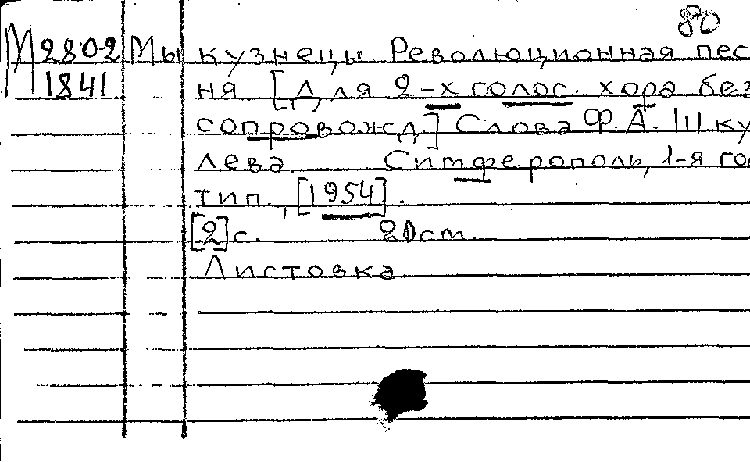 80
М2802 Мы кузнецы Революционная пес
1841 ня [Для 2-х голос. хора без
сопровожд.] Слова Ф. А. Шку
лева Симферополь, 1-я го
тип., [1954].
[2]с. 20см.
Листовка